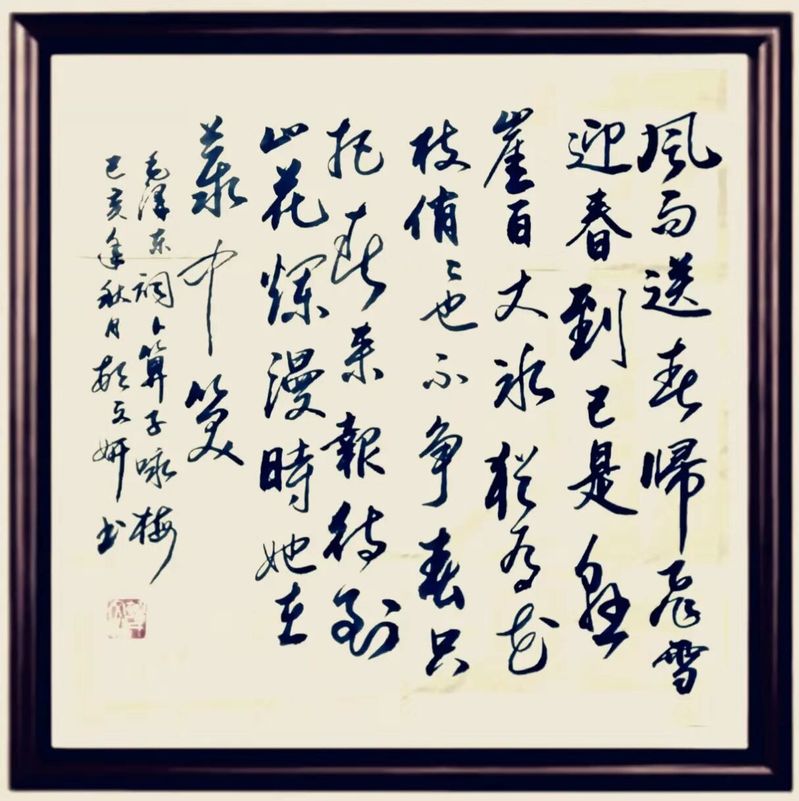 風雨送春歸飛雪
迎春到已是懸
崖百丈冰猶有花
枝俏〻也不争春只
把春来報待到
山花爛漫時她在
叢中笑
毛澤东詞卜算子咏梅
己亥年秋月立妍书